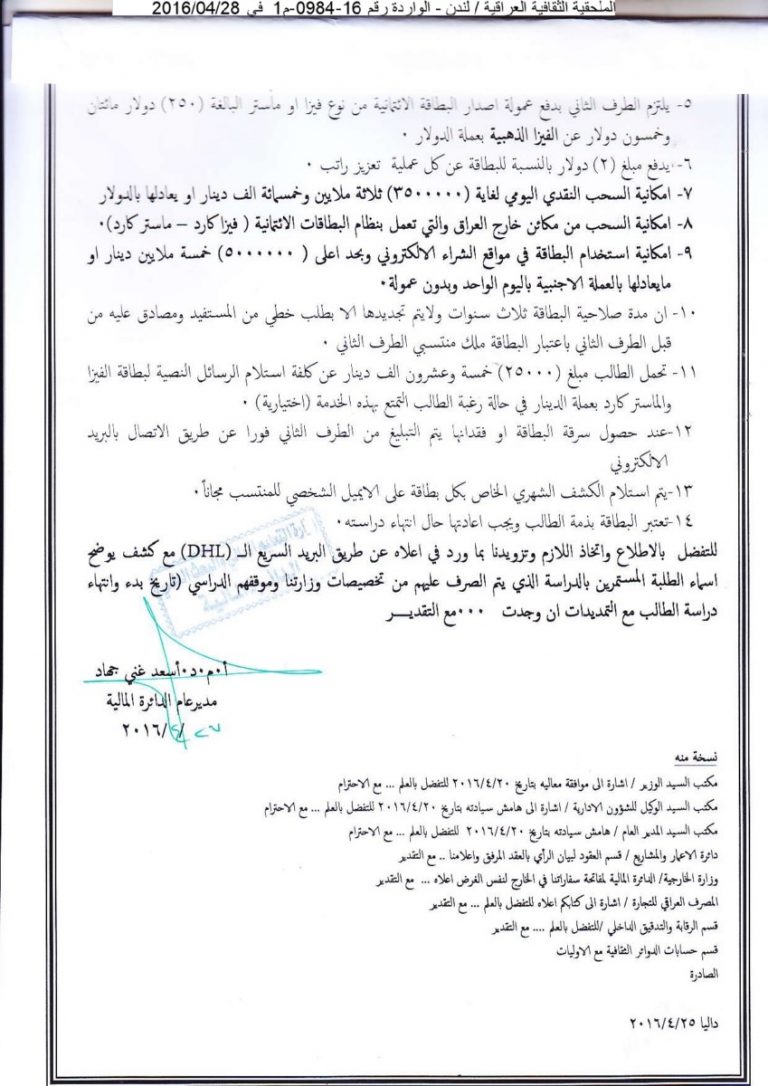 الملحقية الثقافية العراقية / لندن - الواردة رقم 16-0984-م1 في 2016/04/28
٥- يلتزم الطرف الثاني بدفع عمولة اصدار البطاقة الائتمانية من نوع فيزا او ماستر البالغة (٢٥٠) دولار مائتان
وخمسون دولار عن الفيزا الذهبية بعملة الدولار .
٦- يدفع مبلغ (٢) دولار بالنسبة للبطاقة عن كل عملية تعزيز راتب .
٧- امكانية السحب النقدي اليومي لغاية (٣٥٠٠٠٠٠) ثلاثة ملايين وخمسمائة الف دينار او يعادلها بالدولار
٨- امكانية السحب من مكائن خارج العراق والتي تعمل بنظام البطاقات الائتمانية ( فيزا كارد – ماستر كارد).
٩- امكانية استخدام البطاقة في مواقع الشراء الالكتروني وبحد اعلى ( ٥٠٠٠٠٠٠) خمسة ملايين دينار او
مايعادلها بالعملة الاجنبية باليوم الواحد وبدون عمولة.
١٠- ان مدة صلاحية البطاقة ثلاث سنوات ولايتم تجديدها الا بطلب خطي من المستفيد ومصادق عليه من
قبل الطرف الثاني باعتبار البطاقة ملك منتسبي الطرف الثاني .
١١- تحمل الطالب مبلغ (٢٥٠٠٠) خمسة وعشرون الف دينار عن كلفة استلام الرسائل النصية لبطاقة الفيزا
والماستر كارد بعملة الدينار في حالة رغبة الطالب التمتع بهذه الخدمة (اختيارية) .
١٢-عند حصول سرقة البطاقة او فقدانها يتم التبليغ من الطرف الثاني فورا عن طريق الاتصال بالبريد
الالكتروني
١٣-يتم استلام الكشف الشهري الخاص بكل بطاقة على الايميل الشخصي للمنتسب مجاناً.
١٤-تعتبر البطاقة بذمة الطالب ويجب اعادتها حال انتهاء دراسته.
للتفضل بالاطلاع واتخاذ اللازم وتزويدنا بما ورد في اعلاه عن طريق البريد السريع الـ (DHL) مع كشف يوضح
اسماء الطلبة المستمرين بالدراسة الذي يتم الصرف عليهم من تخصيصات وزارتنا وموقفهم الدراسي (تاريخ بدء وانتهاء
دراسة الطالب مع التمديدات ان وجدت ...مع التقديـــر
أ.م.د.أسعد غني جهاد
مدير عام الدائرة المالية
٢٧/٤/٢٠١٦
نسخة منه
مكتب السيد الوزير / اشارة الى موافقة معاليه بتاريخ ٢٠١٦/٤/٢٠ للتفضل بالعلم ... مع الاحترام
مكتب السيد الوكيل للشؤون الادارية / اشارة الى هامش سيادته بتاريخ ٢٠١٦/٤/٢٠ للتفضل بالعلم ... مع الاحترام
مكتب السيد المدير العام / هامش سيادته بتاريخ ٢٠١٦/٤/٢٠ للتفضل بالعلم ... مع الاحترام
دائرة الاعمار والمشاريع / قسم العقود لبيان الرأي بالعقد المرفق واعلامنا .. مع التقدير
وزارة الخارجية/ الدائرة المالية لمفاتحة سفاراتنا في الخارج لنفس الغرض اعلاه ... مع التقدير
المصرف العراقي للتجارة / اشارة الى كتابكم اعلاه للتفضل بالعلم ... مع التقدير
قسم الرقابة والتدقيق الداخلي /للتفضل بالعلم .... مع التقدير
قسم حسابات الدوائر الثقافية مع الاوليات
الصادرة
داليا ٢٠١٦/٤/٢٥